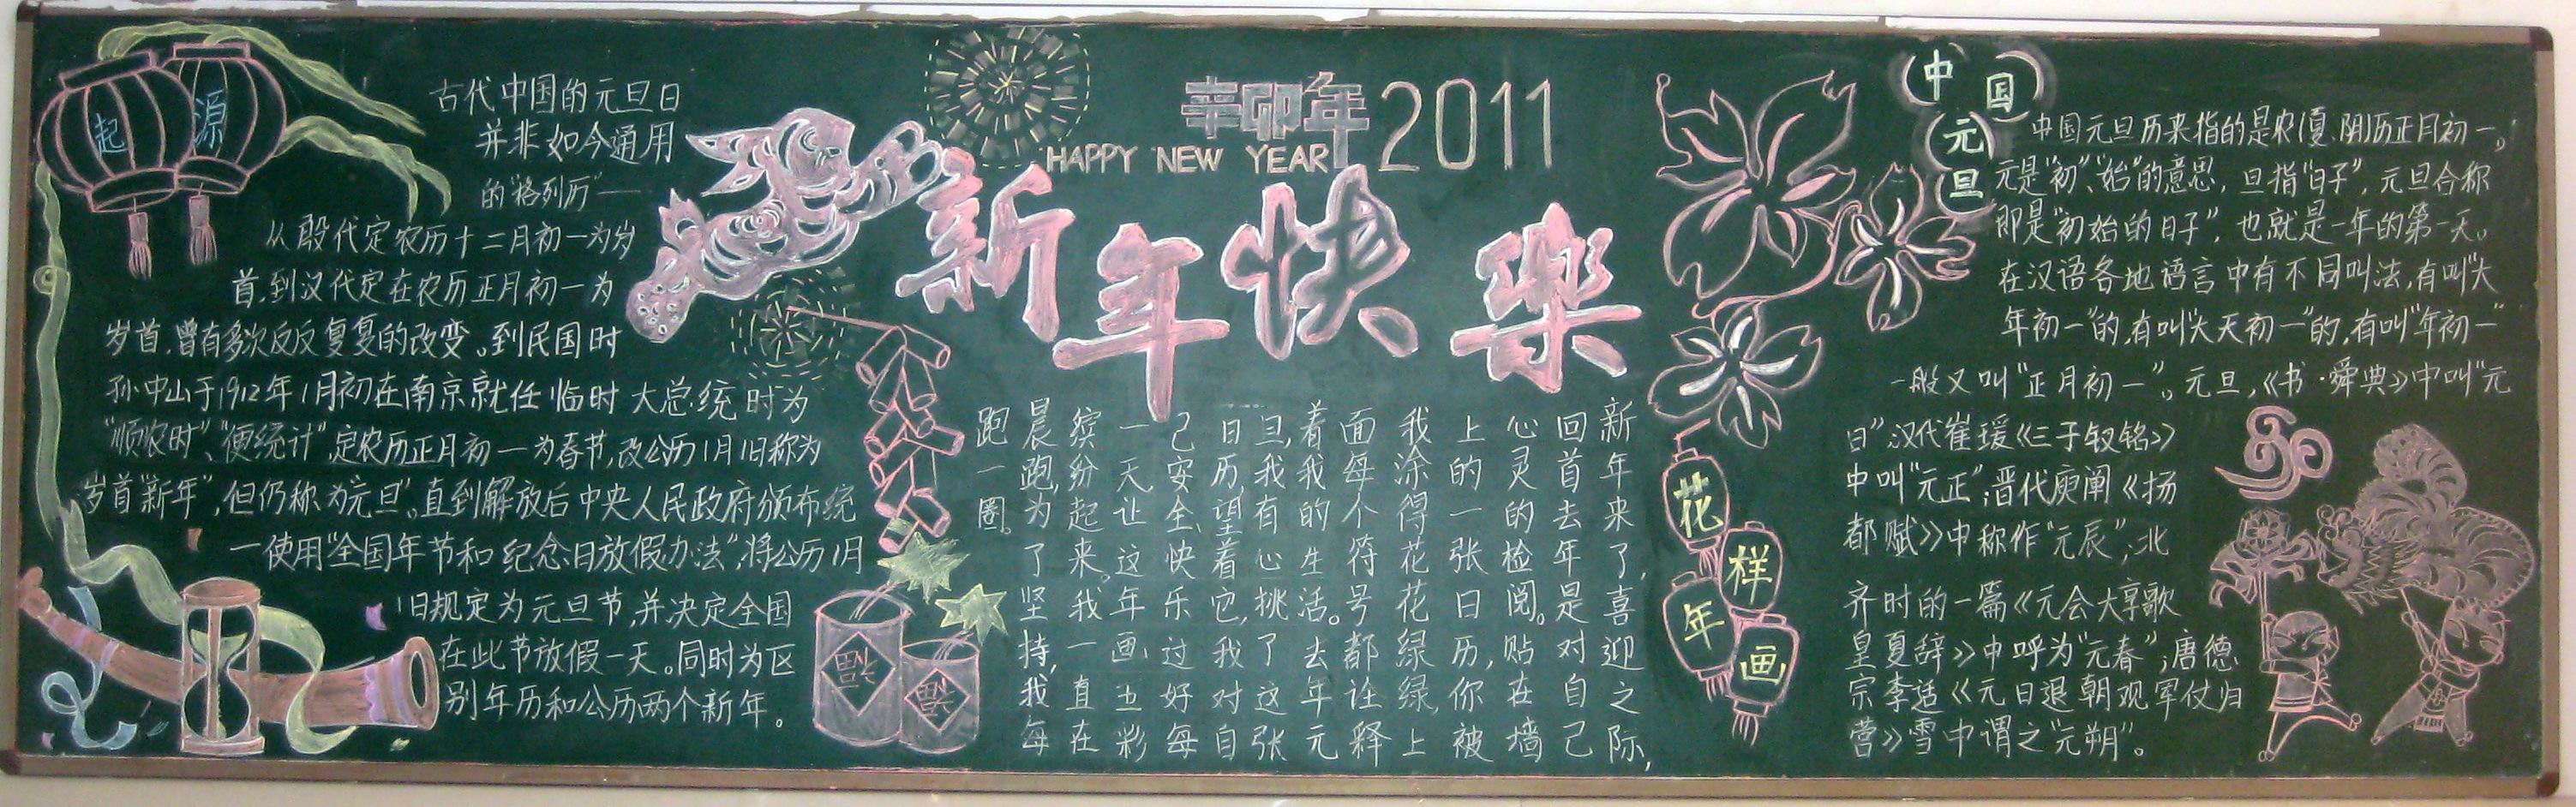 起源
古代中国的元旦日
并非如今通用
的"格列历"——
从殷代定农历十二月初一为岁
首,到汉代定在农历正月初一为
岁首,曾有多次反反复复的改变。到民国时
孙中山于1912年1月初在南京就任临时大总统时为
"顺农时"、"便统计",定农历正月初一为春节,改公历1月1日称为
岁首"新年",但仍称为"元旦"。直到解放后中央人民政府颁布统
一使用"全国年节和纪念日放假办法",将公历1月
1日规定为元旦节,并决定全国
在此节放假一天。同时为区
别年历和公历两个新年。
福
福
辛卯年2011
HAPPY NEW YEAR
新年快樂
新年来了,喜迎之际,
回首去年是对自己
心灵的检阅。贴在墙
上的一张日历,你被
我涂得花花绿绿,上
面每个符号都诠释
着我的生活。去年元
旦,我有心挑了这张
日历,望着它,我对自
己安全、快乐过好每
一天让这年画五彩
缤纷起来。我一直在
晨跑,为了坚持,我每
跑一圈。
花样年画
中国元旦
中国元旦历来指的是农(夏、阴)历正月初一。
元是"初"、"始"的意思,旦指"日子",元旦合称
即是"初始的日子",也就是一年的第一天。
在汉语各地语言中有不同叫法,有叫"大
年初一"的,有叫"大天初一"的,有叫"年初一"
一般又叫"正月初一"。元旦,《书·舜典》中叫"元
日",汉代崔瑗《三子钗铭》
中叫"元正";晋代庾阐《扬
都赋》中称作"元辰";北
齐时的一篇《元会大享歌
皇夏辞》中呼为"元春";唐德
宗李适《元日退朝观军仗归
营》雪中谓之"元朔"。